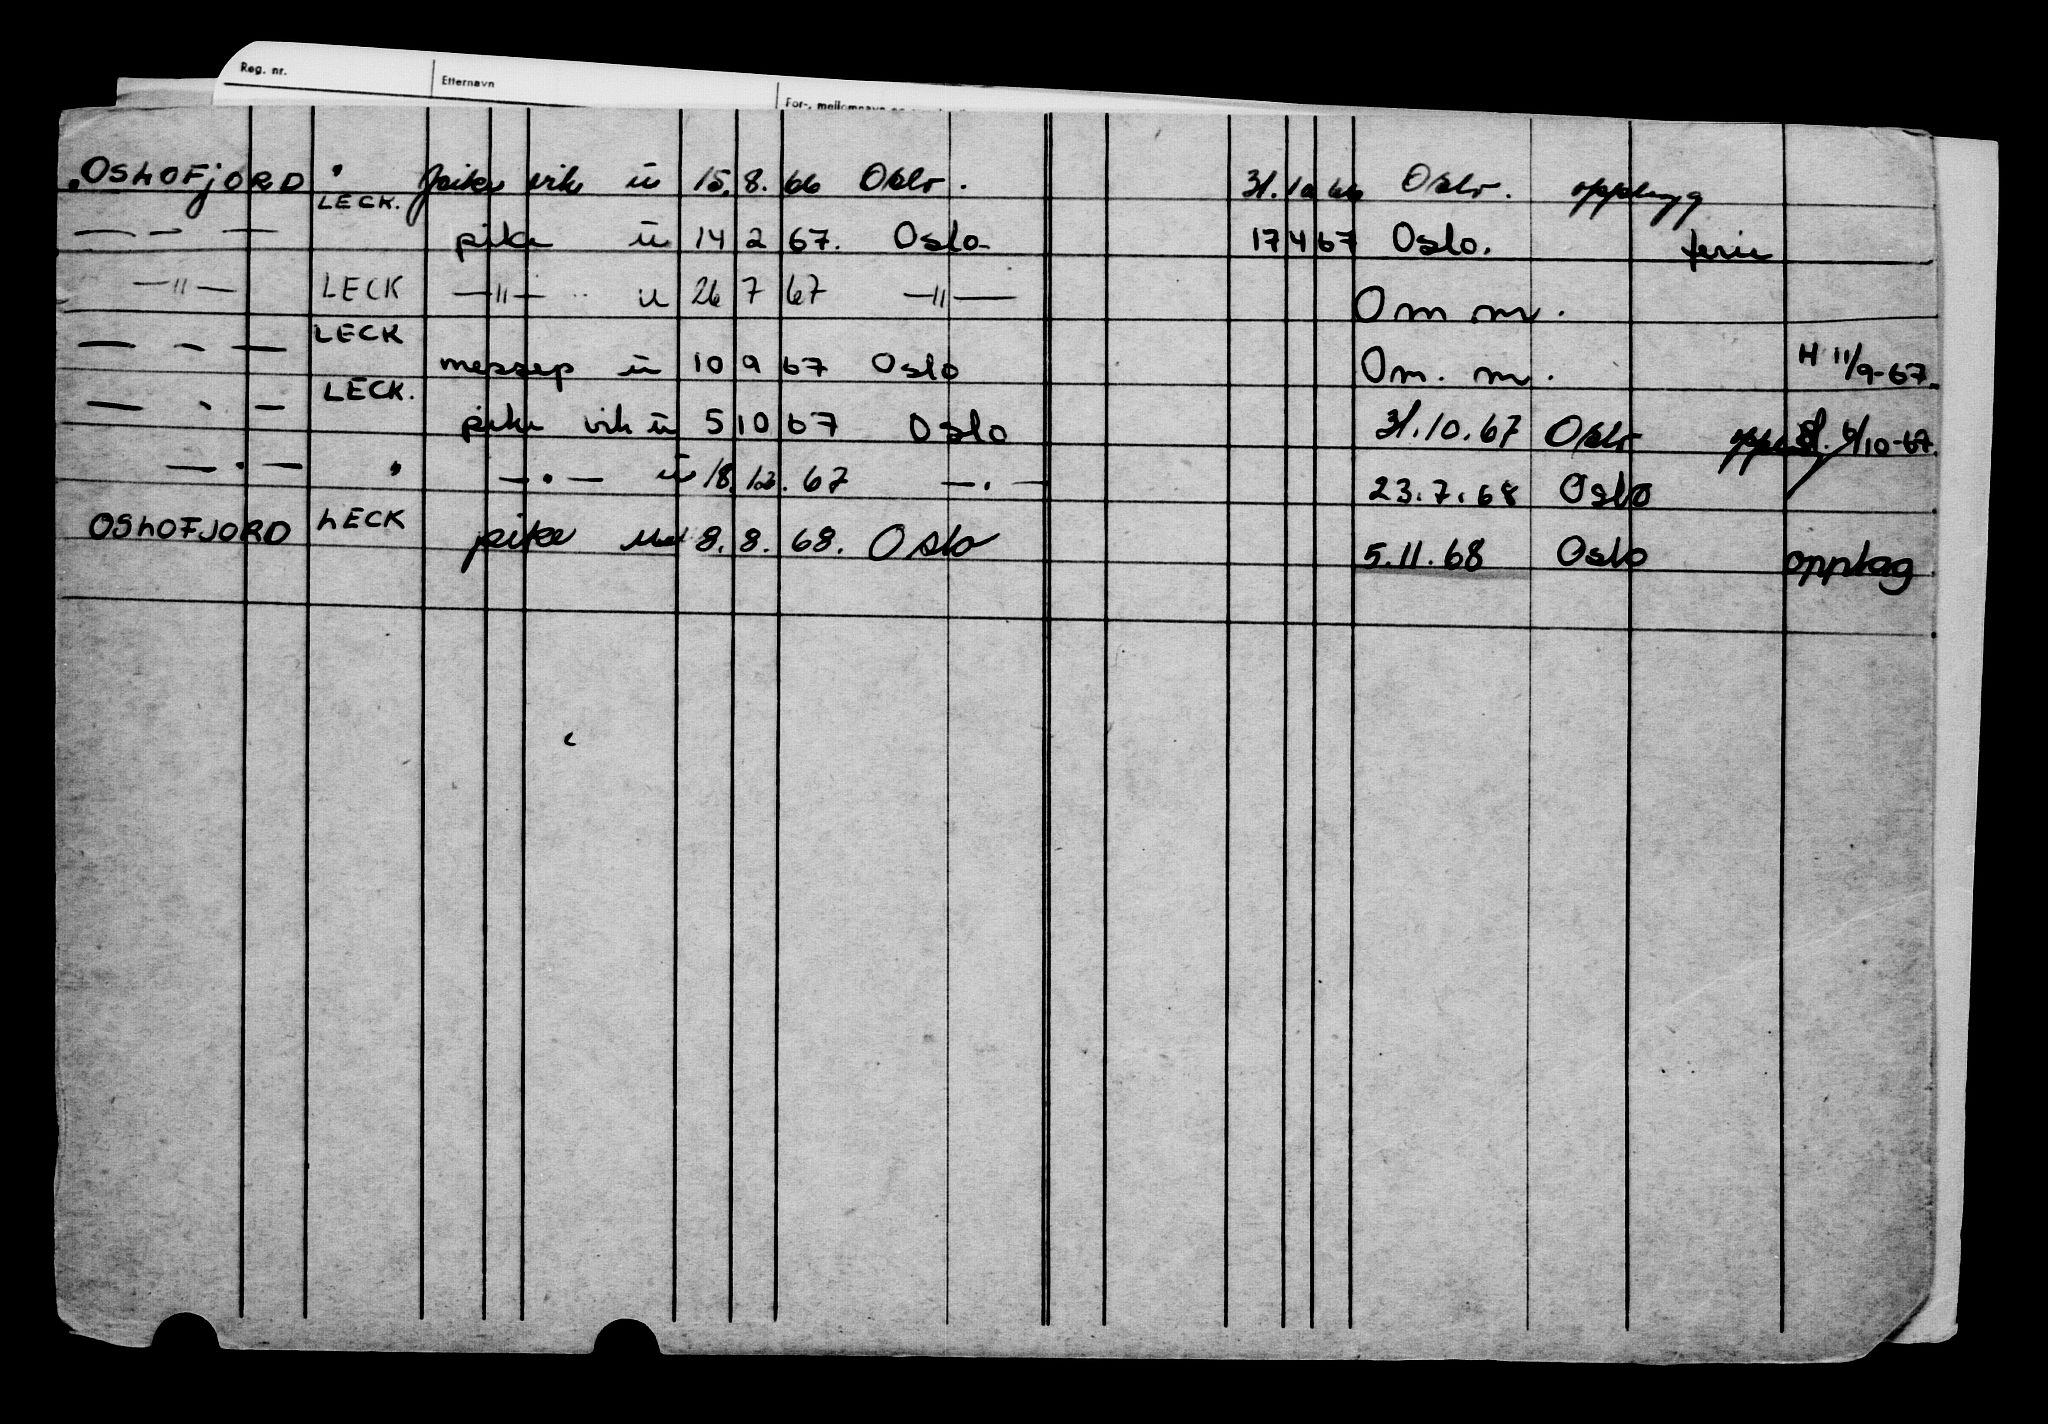 Reg. nr. Etternavn For-, mellomnavn
OSLOFJORD " pike vik u 15. 8. 66 Oslo. 31. 10 66 Oslo. opplegg
— " — LECK. pike u 14 2 67. Oslo 17 4 67 Oslo. ferie
— " — LECK — " — u 26 7 67 — " — Om m.
— " — LECK messep u 10 9 67 Oslo Om. m. H 11/9-67.
— " — LECK. pike vik u 5 10 67 Oslo 31.10.67 Oslo 6/10-67.
— " — " — " — u 18. 12. 67 — " — 23.7.68 Oslo
OSLOFJORD LECK pike 8. 8. 68. Oslo 5.11.68 Oslo opplag